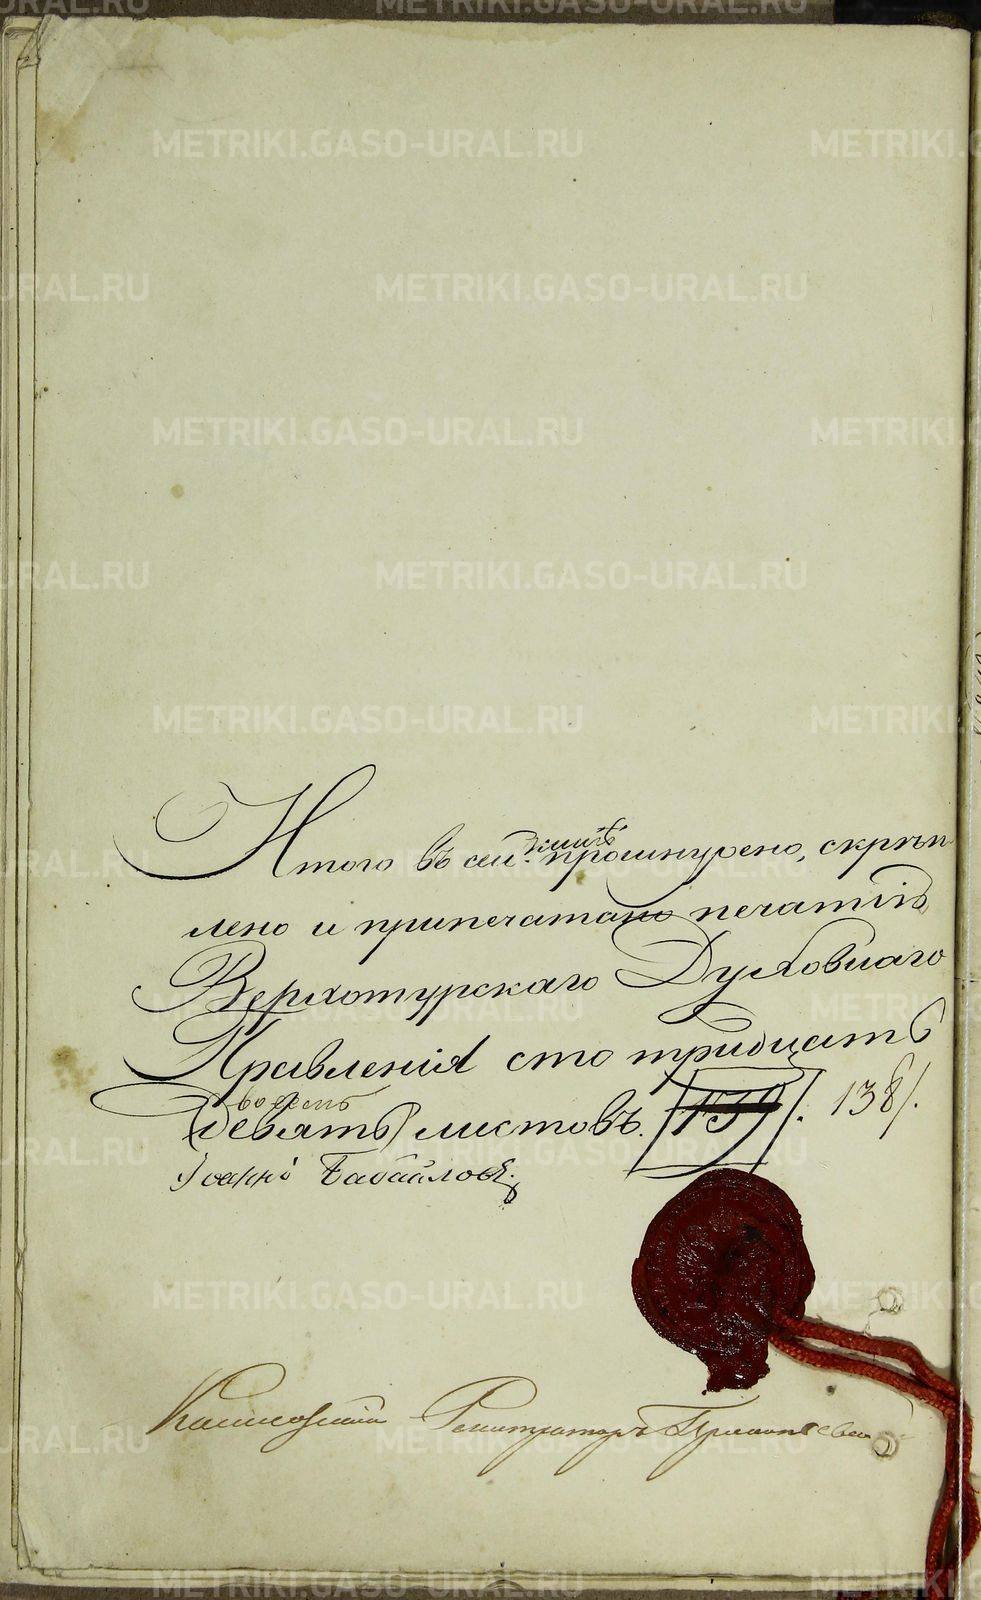 Итого въ сей книгѣ прошнурено, скрѣп
лено и припечатано печатію
Верхотурскаго Духовнаго
Правленія сто тридцать
восемь
девять листовъ. 139/. 138/.
Іоаннъ Бабайловъ
Регистраторъ